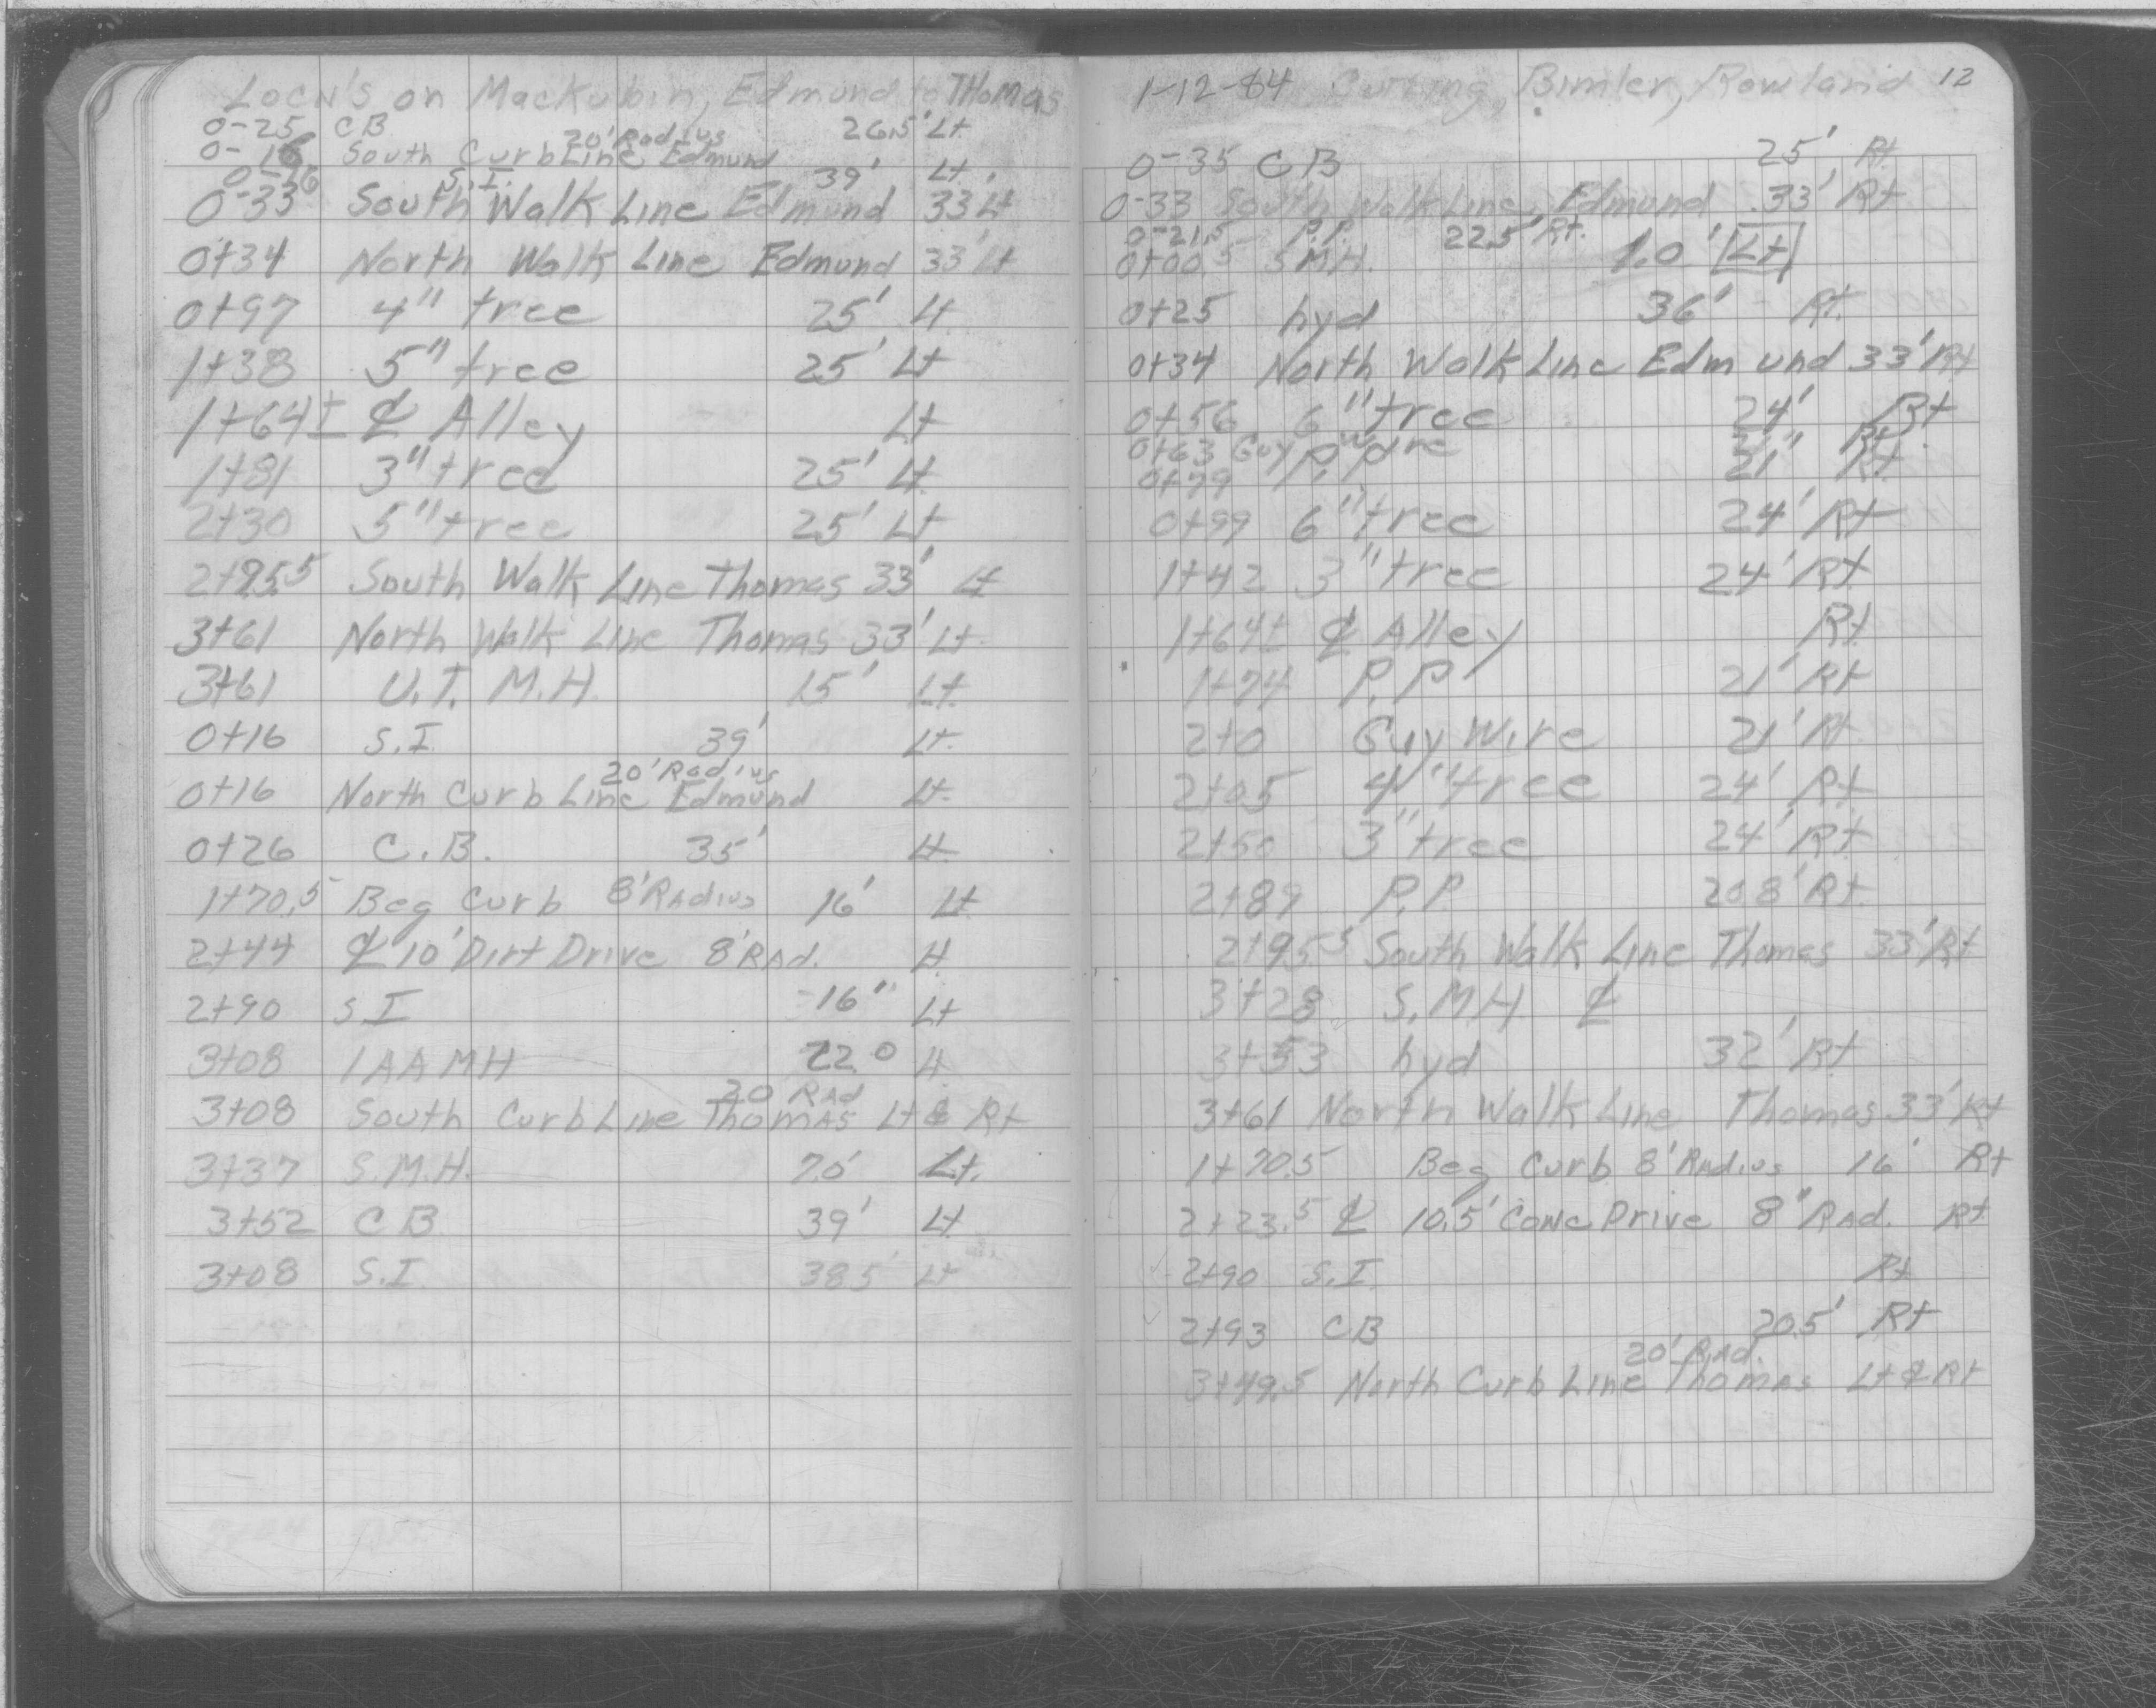 Locn's on Mackubin, Edmund to Thomas
0-25 CB 26.5' Lt
20' Radius
0-16 South Curb Line Edmund
0-16 S.I. 39' Lt.
0-33 South Walk Line Edmund 33' Lt
0+34 North Walk Line Edmund 33' Lt
0+97 4" tree 25' Lt
1+38 5" tree 25' Lt
1+64± ℄ Alley Lt
1+81 3" tree 25' Lt
2+30 5" tree 25' Lt
2+95.5 South Walk Line Thomas 33' Lt
3+61 North Walk Line Thomas 33' Lt.
3+61 U.T. M.H. 15' Lt.
0+16 S.I. 39' Lt.
20' Radius
0+16 North Curb Line Edmund Lt.
0+26 C.B. 35' Lt
1+70.5 Beg Curb 8' Radius 16' Lt
2+44 ℄ 10' Dirt Drive 8' Rad. Lt
2+90 S I 16" Lt
3+08 MH 22.0 Lt
20 Rad
3+08 South Curb Line Thomas Lt & Rt
3+37 S.M.H. Lt.
3+52 CB 39' Lt
3+08 S.I. 38.5' Lt
1-12-84 Bimler, Rowland 12
0-35 CB 25' Rt.
0-33 South Walk Line Edmund 33' Rt
0-21.5 P.P. 22.5' Rt.
0+00.5 S.M.H. 1.0' Lt
0+25 hyd 36' Rt.
0+34 North Walk Line Edmund 33' Rt
0+56 6" tree 24' Rt
0+63 Guy Wire 21' Rt.
0+79 P.P. 21' Rt.
0+99 6" tree 24' Rt
1+42 3" tree 24' Rt
1+64± ℄ Alley Rt
1+74 P.P 21' Rt
2+0 Guy Wire 21' Rt
2+05 4" tree 24' Rt
2+50 3" tree 24' Rt
2+89 P.P. 20.8' Rt.
2+95.5 South Walk Line Thomas 33' Rt
3+28 S.M.H ℄
3+53 hyd 32' Rt
3+61 North Walk Line Thomas 33' Rt
1+70.5 Beg Curb 8' Radius 16' Rt
2+23.5 ℄ 10.5' Conc Drive 8" Rad. Rt
2+90 S.I. Rt
2+93 CB 20.5' Rt
20' Rad.
3+49.5 North Curb Line Thomas Lt & Rt